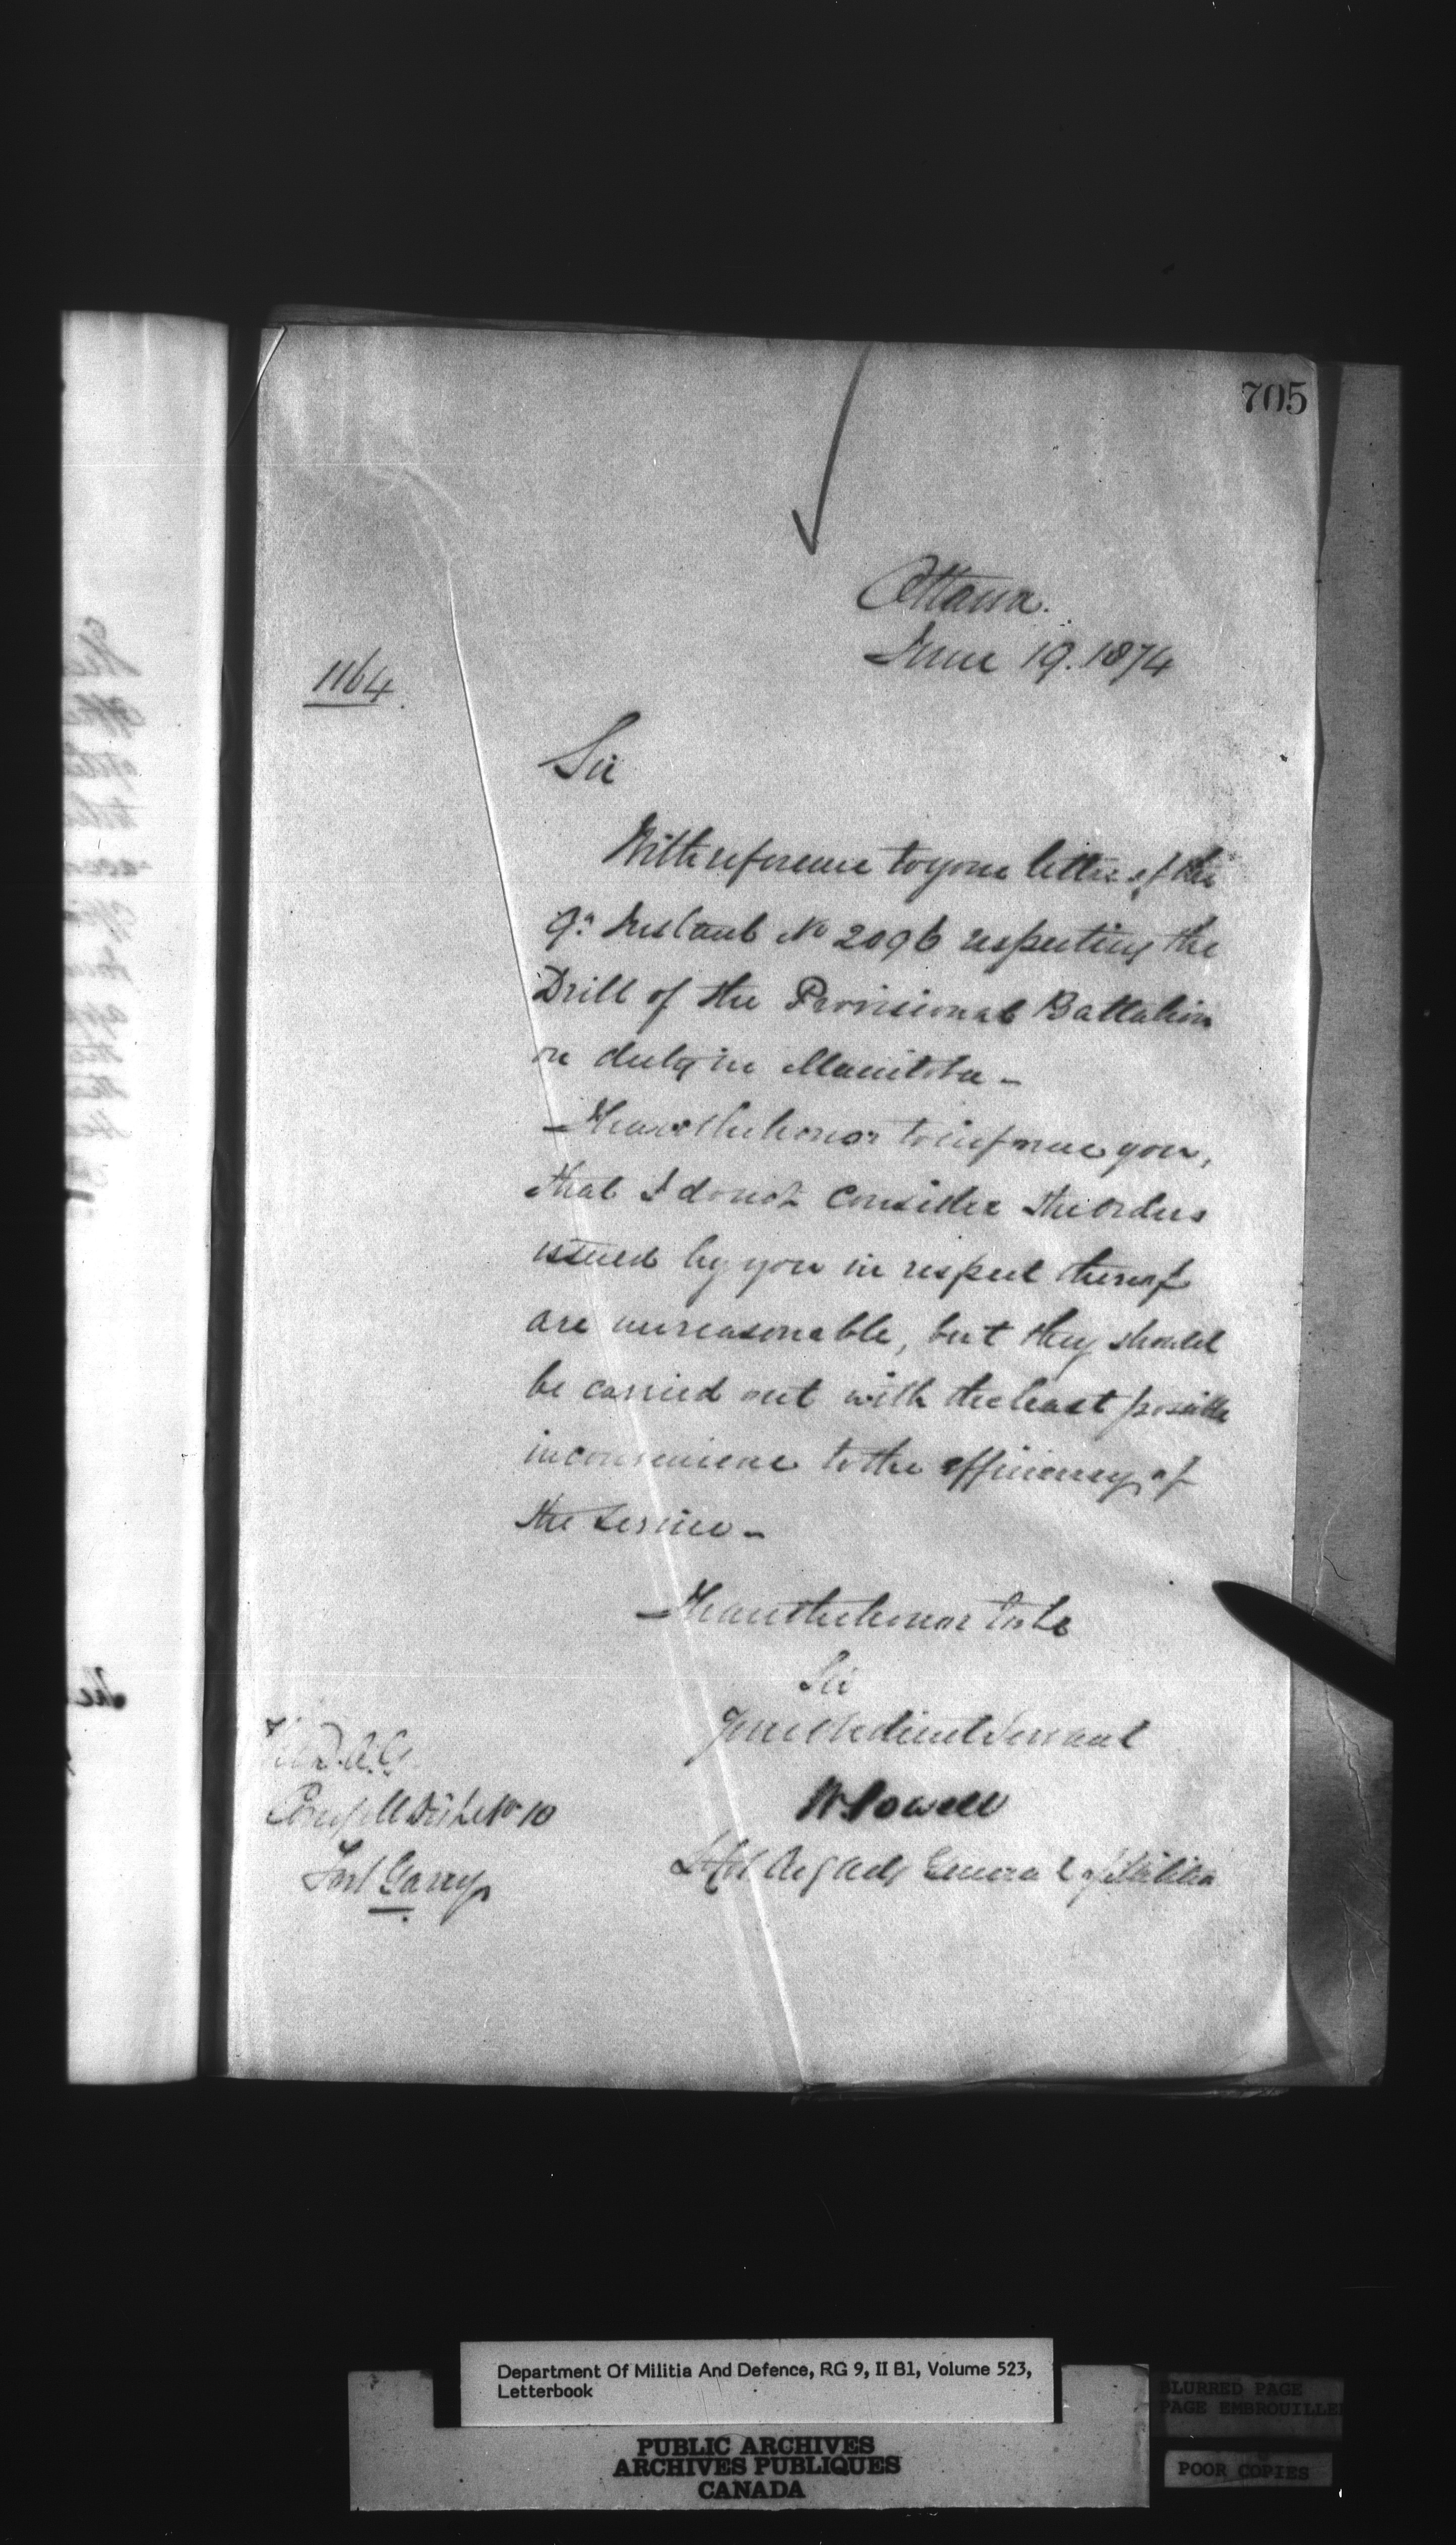 705
Ottawa.
June 19. 1874
1164
Sir
With reference to your letter of the
9th Instant No 2096 respecting the
Drill of the Provisional Battalion
on duty in Manitoba -
I have the honor to inform you,
that I do not consider the orders
issued by you in respect thereof
are unreasonable, but they should
be carried out with the least possible
inconvenience to the efficiency of
the service -
I have the honor to be
Sir
Your obedient Servant
W Powell
Lt Col Actg Adjt General of Militia
The D.A.G.
Comg M Dist No 10
Fort Garry
Department Of Militia And Defence, RG 9, II B1, Volume 523,
Letterbook
PUBLIC ARCHIVES
ARCHIVES PUBLIQUES
CANADA
BLURRED PAGE
PAGE EMBROUILLE
POOR COPIES